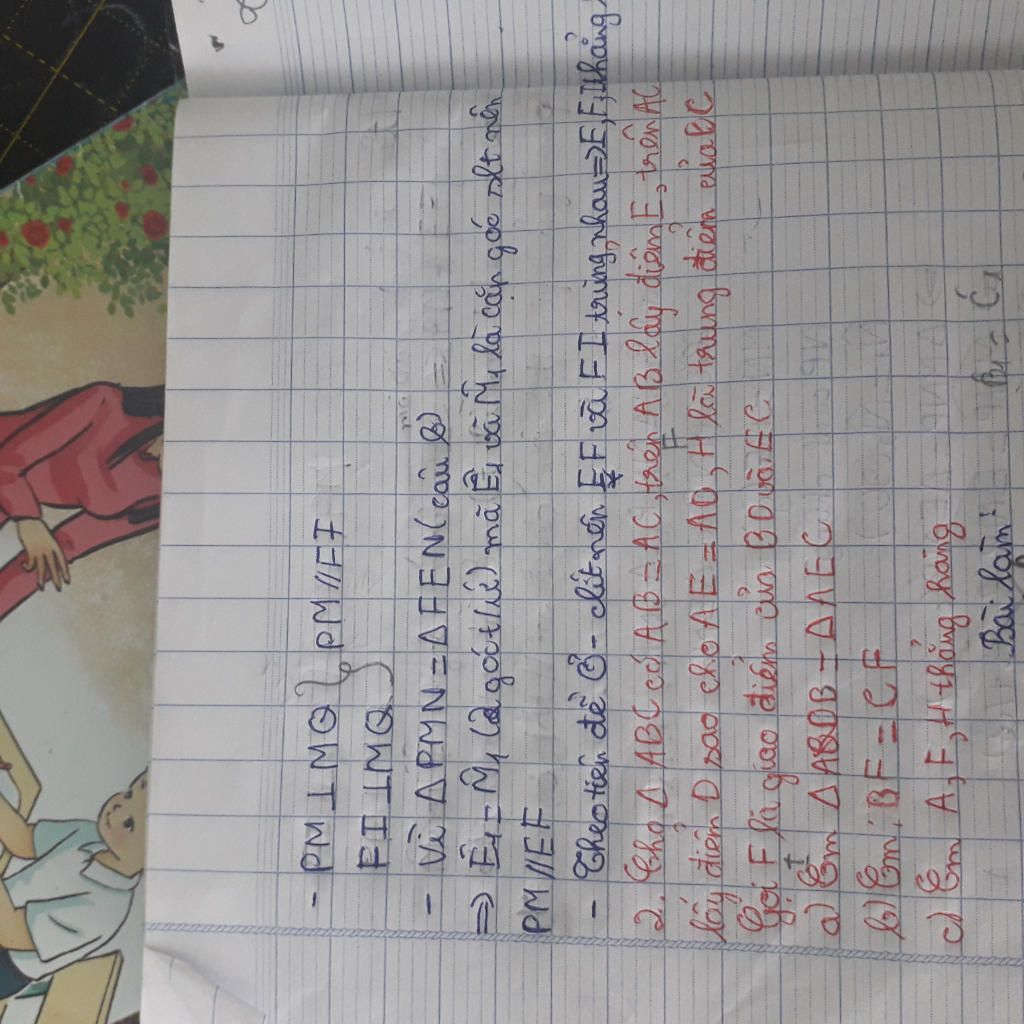 - PM ⊥ MQ } PM // FI
FI ⊥ MQ
- Vì Δ PMN = Δ FEN (câu b)
=> Ê₁ = M̂₁ (2 góc t/ứ) mà Ê₁ và M̂₁ là cặp góc slt nên
PM // EF
- Theo tiên đề Ơ-clít nên EF và FI trùng nhau => E, F, I thẳng
2. Cho Δ ABC có AB = AC, trên AB lấy điểm E, trên AC
lấy điểm D sao cho AE = AD, H là trung điểm của BC
Gọi F là giao điểm của BD và EC
a) Cm Δ ABDB = Δ AEC
b) Cm: BF = CF
c) Cm A, F, H thẳng hàng
Bài làm:
B₁ = C₁